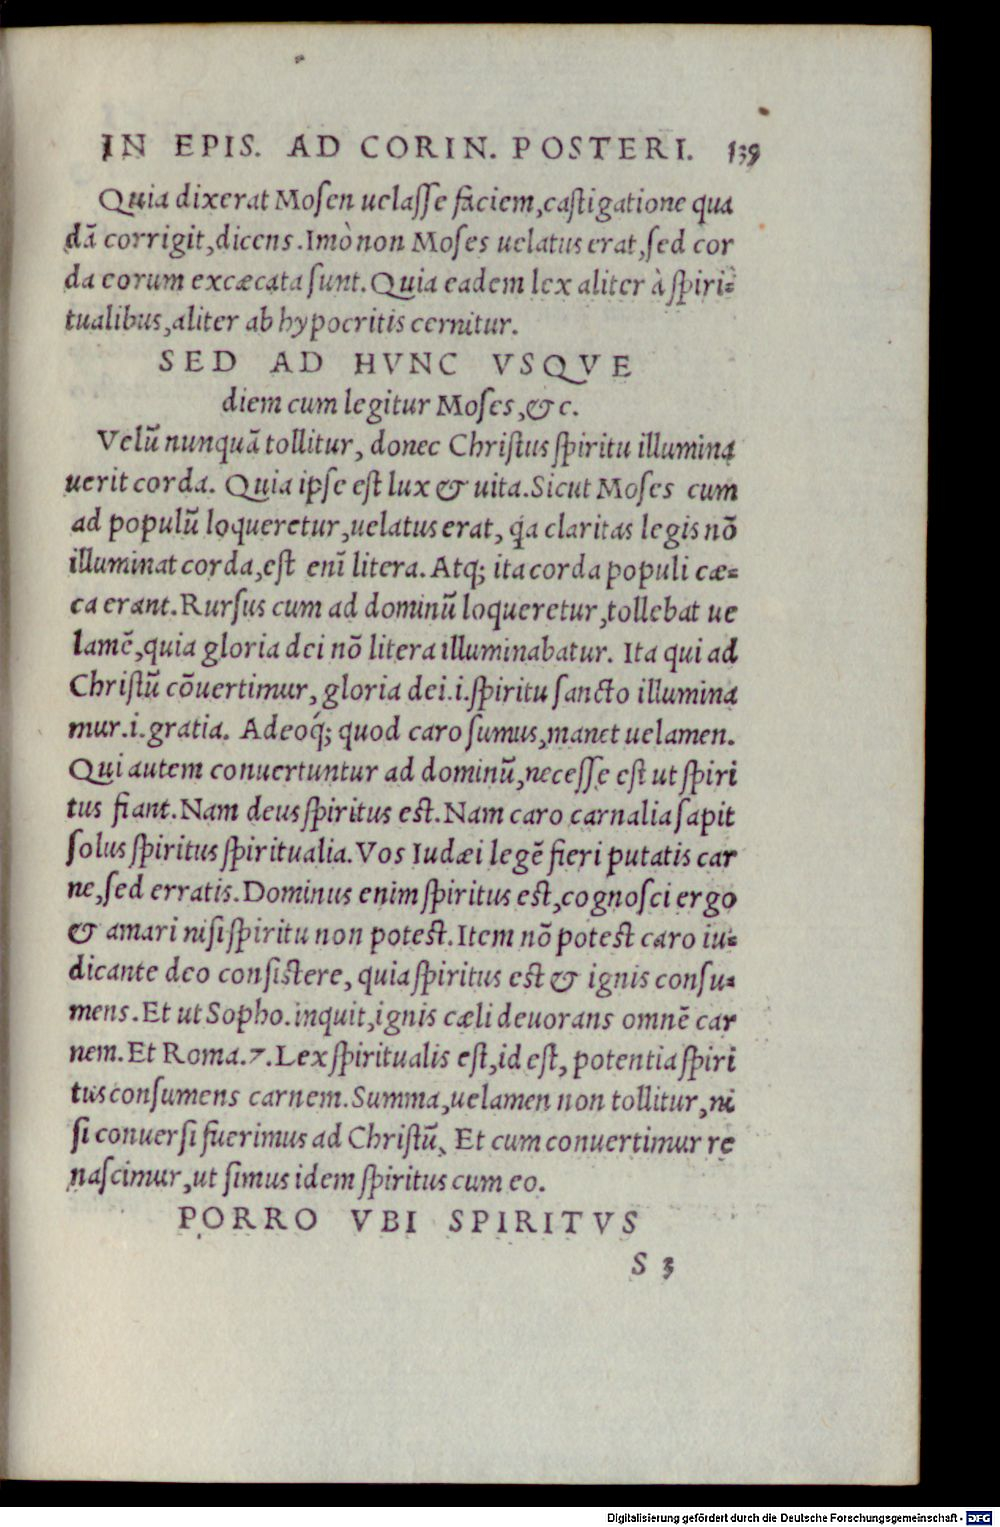 IN EPIS. AD CORIN. POSTERI. 139
Quia dixerat Mosen uelasse faciem, castigatione qua
dã corrigit, dicens. Imò non Moses uelatus erat, sed cor
da eorum excæcata sunt. Quia eadem lex aliter à spiri-
tualibus, aliter ab hypocritis cernitur.
SED AD HVNC VSQVE
diem cum legitur Moses, &c.
Velũ nunquã tollitur, donec Christus spiritu illumina
uerit corda. Quia ipse est lux & uita. Sicut Moses cum
ad populũ loqueretur, uelatus erat, q̃a claritas legis nõ
illuminat corda, est enĩ litera. Atq; ita corda populi cæ-
ca erant. Rursus cum ad dominũ loqueretur, tollebat ue
lamẽ, quia gloria dei nõ litera illuminabatur. Ita qui ad
Christũ cõuertimur, gloria dei .i. spiritu sancto illumina
mur .i. gratia. Adeoq́; quod caro sumus, manet uelamen.
Qui autem conuertuntur ad dominũ, necesse est ut spiri
tus fiant. Nam deus spiritus est. Nam caro carnalia sapit
solus spiritus spiritualia. Vos Iudæi legẽ fieri putatis car
ne, sed erratis. Dominus enim spiritus est, cognosci ergo
& amari nisi spiritu non potest. Item nõ potest caro iu-
dicante deo consistere, quia spiritus est & ignis consu-
mens. Et ut Sopho. inquit, ignis cæli deuorans omnẽ car
nem. Et Roma. 7. Lex spiritualis est, id est, potentia spiri
tus consumens carnem. Summa, uelamen non tollitur, ni
si conuersi fuerimus ad Christũ, Et cum conuertimur re
nascimur, ut simus idem spiritus cum eo.
PORRO VBI SPIRITVS
S 3
Digitalisierung gefördert durch die Deutsche Forschungsgemeinschaft - DFG